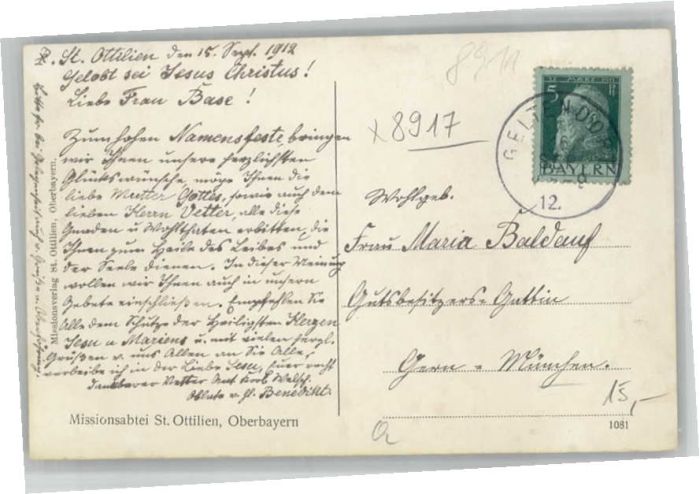 St. Ottilien den 15. Sept. 1912
Gelobt sei Jesus Christus!
Liebe Frau Base!
Zum hohen Namensfeste bringen
wir Ihnen unsere herzlichsten
Glückswünsche, möge Ihnen die
liebe Mutter Gottes, sowie auch dem
lieben Herrn Vetter, alle diese
Gnaden u Wohlthaten erbitten, die
Ihnen zum Heile des Leibes und
der Seele dienen. In dieser Meinung
wollen wir Ihnen auch in unsern
Gebete einschließen. Empfehlen Sie
Alle dem Schutze der Heiligsten Herzen
Jesu u Mariens u. mit vielen herzl.
Grüßen v. uns Allen an Sie Alle,
verbleibe ich in der Liebe Jesu, Euer recht
dankbarer Vetter
Oblate v. hl. Benedikt
Missionsverlag St. Ottilien, Oberbayern.
Missionsabtei St. Ottilien, Oberbayern
8911
x8917
5 Pf
BAYERN
GELTENDORF
12.
Wohlgeb.
Frau Maria Baldauf
Gutsbesitzers-Gattin
Gern - München.
15,-
a
1081